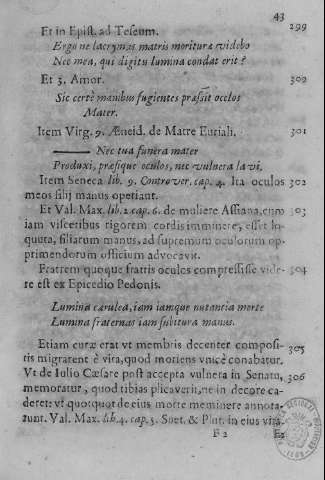 43
Et in Epist. ad Teseum. 299
Ergo ne lacrymas matris moritura videbo
Nec mea, qui digitu lumina condat erit?
Et 3. Amor. 300
Sic certè manibus fugientes præssit ocelos
Mater.
Item Virg. 9. Æneid. de Matre Eutiali. 301
Nec tua funera mater
Produxi, præsique oculos, nec vulnera lavi.
Item Seneca lib. 9. Controver. cap. 4. Ita oculos 302
meos filij manus opetiant.
Et Val. Max. lib. 2 cap. 6. de muliere Assiana, cum 303
iam visceribus rigorem cordis imminere, esset lo-
quuta, filiarum manus, ad supremum oculorum op-
primendorum officium advocavit.
Fratrem quoque fratris oculos compressisse vide- 304
re est ex Epicedio Pedonis.
Lumina cærulea, iam iamque natantia morte
Lumina fraternas iam subitura manus.
Etiam curæ erat vt membris decenter composi- 305
tis migrarent è vita, quod moriens vnicè conabatur.
Vt de Iulio Cæsare post accepta vulnera in Senatu, 306
memoratur, quod tibias plicaverit, ne in decore ca-
deret: vt quotquot de eius morte meminere annota-
runt. Val. Max. lib. 4. cap. 5. Suet. & Plut. in eius vita.
F 2